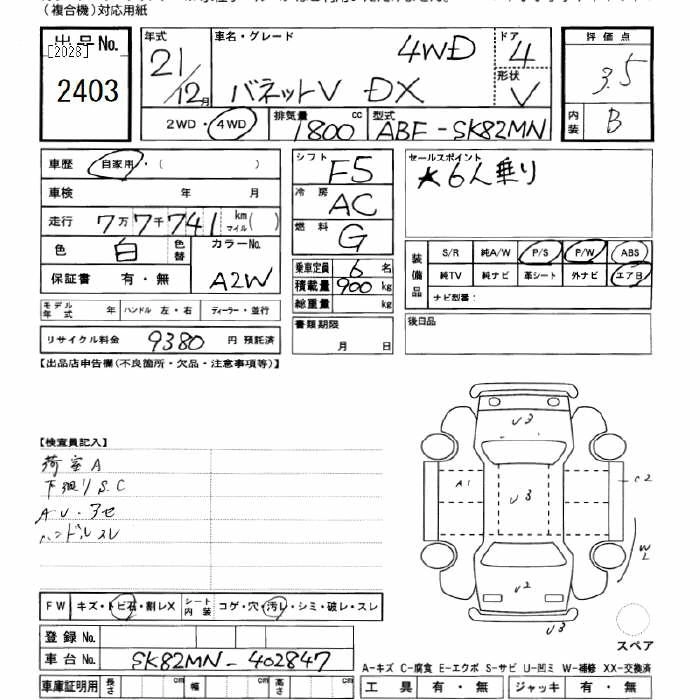 (複合機)対応用紙
出品No.
[2028]
2403
年式
21/12月
車名・グレード
バネットV DX 4WD
ドア
4
形状
V
評価点
3.5
内装
B
2WD・4WD
排気量
1800cc
型式
ABF-SK82MN
車歴 自家用・( )
車検 年 月
走行 7万7千741 km マイル( )
色 白 色替
カラーNo.
A2W
保証書 有・無
モデル年式 年 ハンドル 左・右 ディーラー・並行
リサイクル料金 9380 円 預託済
シフト F5
冷房 AC
燃料 G
乗車定員 6名
積載量 900kg
総重量 kg
書類期限
月 日
セールスポイント
★6人乗り
装備品
S/R 純A/W P/S P/W ABS
純TV 純ナビ 革シート 外ナビ エアB
ナビ型番:
後日品
【出品店申告欄(不良箇所・欠品・注意事項等)】
【検査員記入】
荷室A
下廻りS.C
AU・アセ
ハンドルスレ
U3
A1
U3
C2
W2
U2
U3
スペア
FW キズ・トビ石・割レX シート内装 コゲ・穴・汚レ・シミ・破レ・スレ
登録No.
車台No. SK82MN-402847
車庫証明用 長さ cm 幅 cm 高さ cm
A-キズ C-腐食 E-エクボ S-サビ U-凹ミ W-補修 XX-交換済
工具 有・無 ジャッキ 有・無